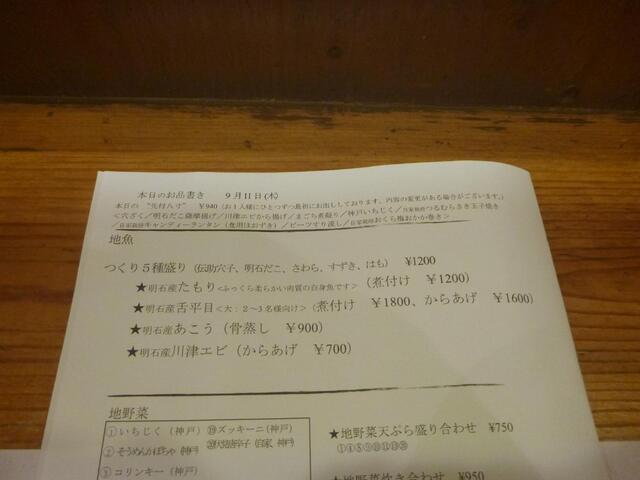 本日のお品書き 9月11日(木)
本日の “先付八寸” ¥940(お1人様にひとつずつ最初にお出ししております。内容の変更がある場合がございます。)
<穴ざく／明石だこ薩摩揚げ／川津エビから揚げ／まごち煮凝り／神戸いちじく／自家栽培つるむらさき玉子焼き
／自家栽培キャンディーランタン（食用ほおずき）／ビーツすり流し／自家栽培おくら梅おかか巻き>
地魚
つくり５種盛り（伝助穴子、明石だこ、さわら、すずき、はも） ¥1200
★明石産たもり<ふっくら柔らかい肉質の白身魚です>（煮付け ¥1200）
★明石産舌平目<大：２～３名様向け>（煮付け ¥1800、からあげ ¥1600）
★明石産あこう（骨蒸し ¥900）
★明石産川津エビ（からあげ ¥700）
地野菜
①いちじく（神戸） ⑲ズッキーニ（神戸）
②そうめんかぼちゃ（神戸）
③コリンキー（神戸）
★地野菜天ぷら盛り合わせ ¥750
★地野菜炊き合わせ ¥950